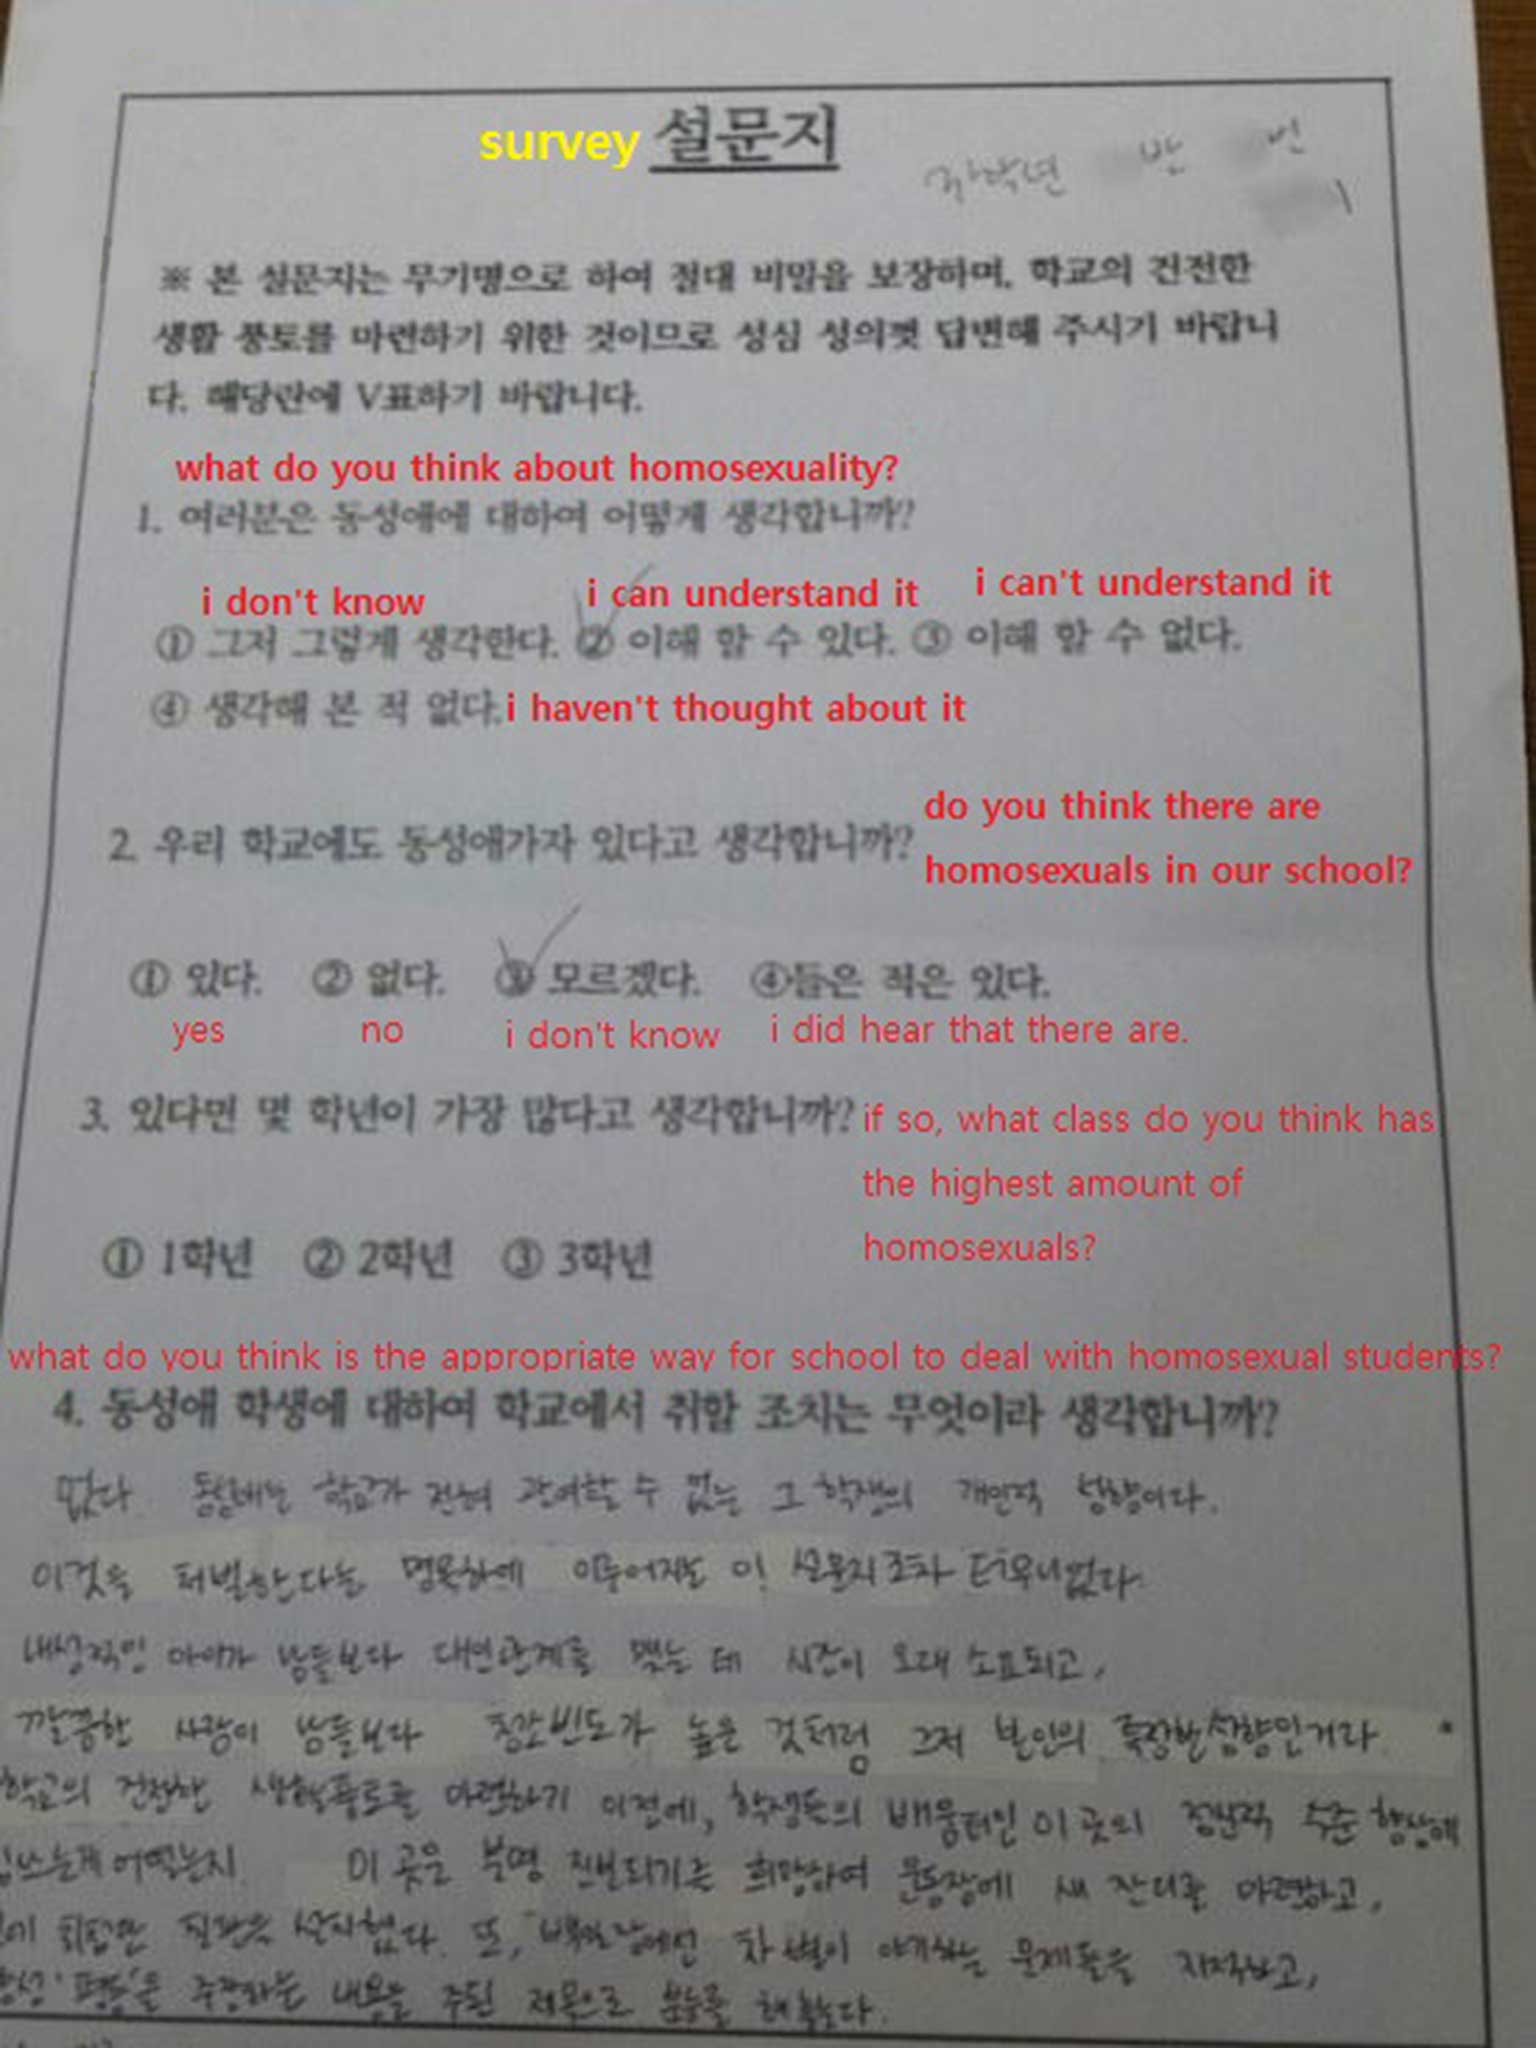 survey 설문지
학년 반 번
※ 본 설문지는 무기명으로 하여 절대 비밀을 보장하며, 학교의 건전한
생활 풍토를 마련하기 위한 것이므로 성심 성의껏 답변해 주시기 바랍니
다. 해당란에 V표하기 바랍니다.
what do you think about homosexuality?
1. 여러분은 동성애에 대하여 어떻게 생각합니까?
i don't know i can understand it i can't understand it
① 그저 그렇게 생각한다. ② 이해 할 수 있다. ③ 이해 할 수 없다.
④ 생각해 본 적 없다. i haven't thought about it
do you think there are
2. 우리 학교에도 동성애가자 있다고 생각합니까?
homosexuals in our school?
① 있다. ② 없다. ③ 모르겠다. ④들은 적은 있다.
yes no i don't know i did hear that there are.
3. 있다면 몇 학년이 가장 많다고 생각합니까? if so, what class do you think has
the highest amount of
homosexuals?
① 1학년 ② 2학년 ③ 3학년
what do you think is the appropriate way for school to deal with homosexual students?
4. 동성애 학생에 대하여 학교에서 취할 조치는 무엇이라 생각합니까?
없다. 동성애는 학교가 전혀 관여할 수 없는 그 학생의 개인적 성향이다.
이것을 처벌한다는 명목하에 이루어지는 이 설문지조차 터무니없다.
내성적인 아이가 남들보다 대인관계를 맺는 데 시간이 오래 소요되고,
깔끔한 사람이 남들보다 청소빈도가 높은 것처럼 그저 본인의 성향인거라.
학교의 건전한 생활풍토를 마련하기 이전에, 학생들의 배움터인 이 곳의 정신적 수준 향상에
힘쓰는게 어떻는지. 이 곳은 분명 진보되기를 희망하여 운동장에 새 잔디를 마련하고,
설치했다. 또, 차별이 야기하는 문제들을 지적하고,
'평등'을 주장하는 내용을 주된 제목으로